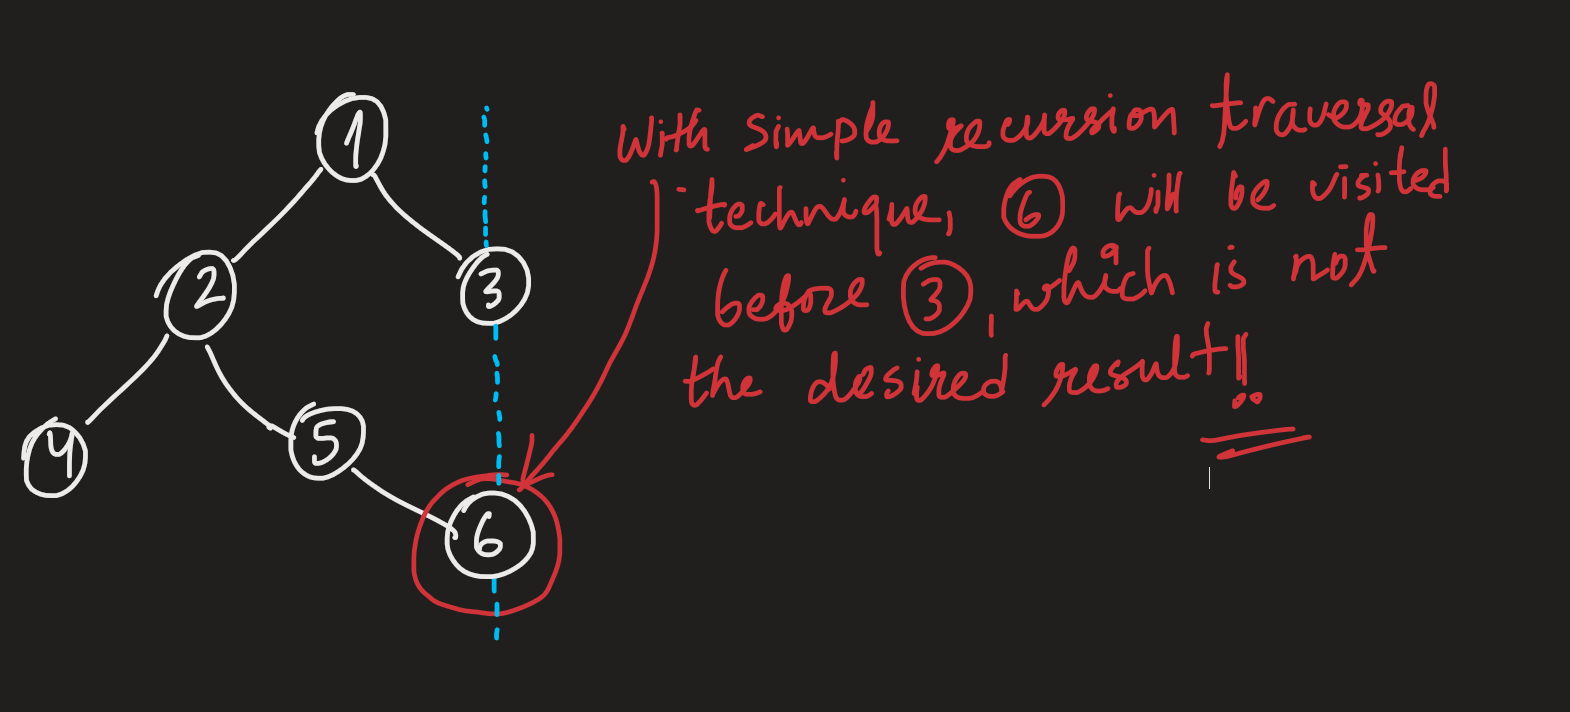 1
With simple recursion traversal
technique, 6 will be visited
2
3
before 3, which is not
the desired result!!
4
5
6